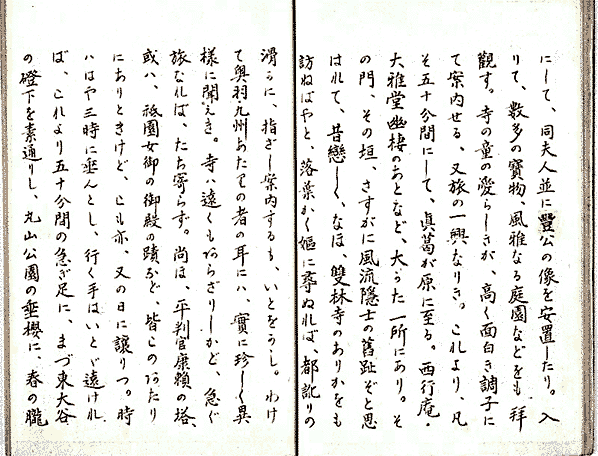 にして、同夫人並に豐公の像を安置したり。入
りて、數多の寶物、風雅なる庭園などをも拜
觀す。寺の童の愛らしきが、高く面白き調子に
て案內せる、又旅の一興なりき。これより、凡
そ五十分間にして、眞葛が原に至る。西行庵・
大雅堂幽棲のあとなど、大かた一所にあり。そ
の門、その垣、さすがに風流隱士の舊趾ぞと思
はれて、昔戀しく、なほ、雙林寺のありかをも
訪ねばやと、落葉かく嫗に尋ぬれば、都訛りの
滑らに、指ざし案內するも、いとをかし。わけ
て奧羽九州あたりの者の耳にハ、實に珍しく異
樣に聞えき。寺ハ遠くもあらざりしかど、急ぐ
旅なれば、たち寄らず。尚ほ、平判官康賴の塔、
或ハ、祇園女御の御殿の蹟など、皆このあたり
にありときけど、こも亦、又の日に讓りつ。時
ハはや三時に垂んとし、行く手はいとゞ遠けれ
ば、これより五十分間の急ぎ足に、まづ東大谷
の磴下を素通りし、丸山公園の垂櫻に、春の朧